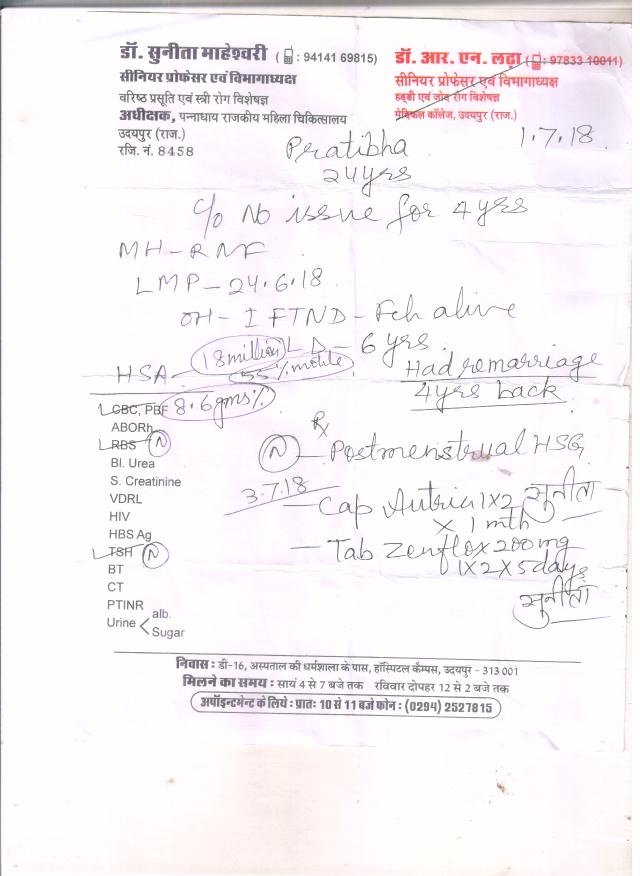 डॉ. सुनीता माहेश्वरी ( : 94141 69815)
सीनियर प्रोफेसर एवं विभागाध्यक्ष
वरिष्ठ प्रसूति एवं स्त्री रोग विशेषज्ञ
अधीक्षक, पन्नाधाय राजकीय महिला चिकित्सालय
उदयपुर (राज.)
रजि. नं. 8458
डॉ. आर. एन. लढ़ा ( : 97833 10011)
सीनियर प्रोफेसर एवं विभागाध्यक्ष
हड्डी एवं जोड़ रोग विशेषज्ञ
मेडिकल कॉलेज, उदयपुर (राज.)
1.7.18
Pratibha
24yrs
c/o No issue for 4 yrs
MH - RMF
LMP - 24.6.18
OH - I FTND - Fch alive
LD - 6 yrs.
HSA - 18 million
55% motile
Had remarriage
4yrs back
CBC, PBF 8.6gms%
ABORh
RBS N
Bl. Urea
S. Creatinine
VDRL
HIV
HBS Ag
TSH N
BT
CT
PTINR
Urine alb.
Sugar
Rx
N - Postmenstrual HSG
सुनीता
3.7.18
- Cap Autrin 1x2
x 1 mth
- Tab Zenflox 200mg
1x2x5days
सुनीता
निवास : डी-16, अस्पताल की धर्मशाला के पास, हॉस्पिटल कैम्पस, उदयपुर - 313 001
मिलने का समय : सायं 4 से 7 बजे तक रविवार दोपहर 12 से 2 बजे तक
अपॉइन्टमेन्ट के लिये : प्रातः 10 से 11 बजे फोन : (0294) 2527815